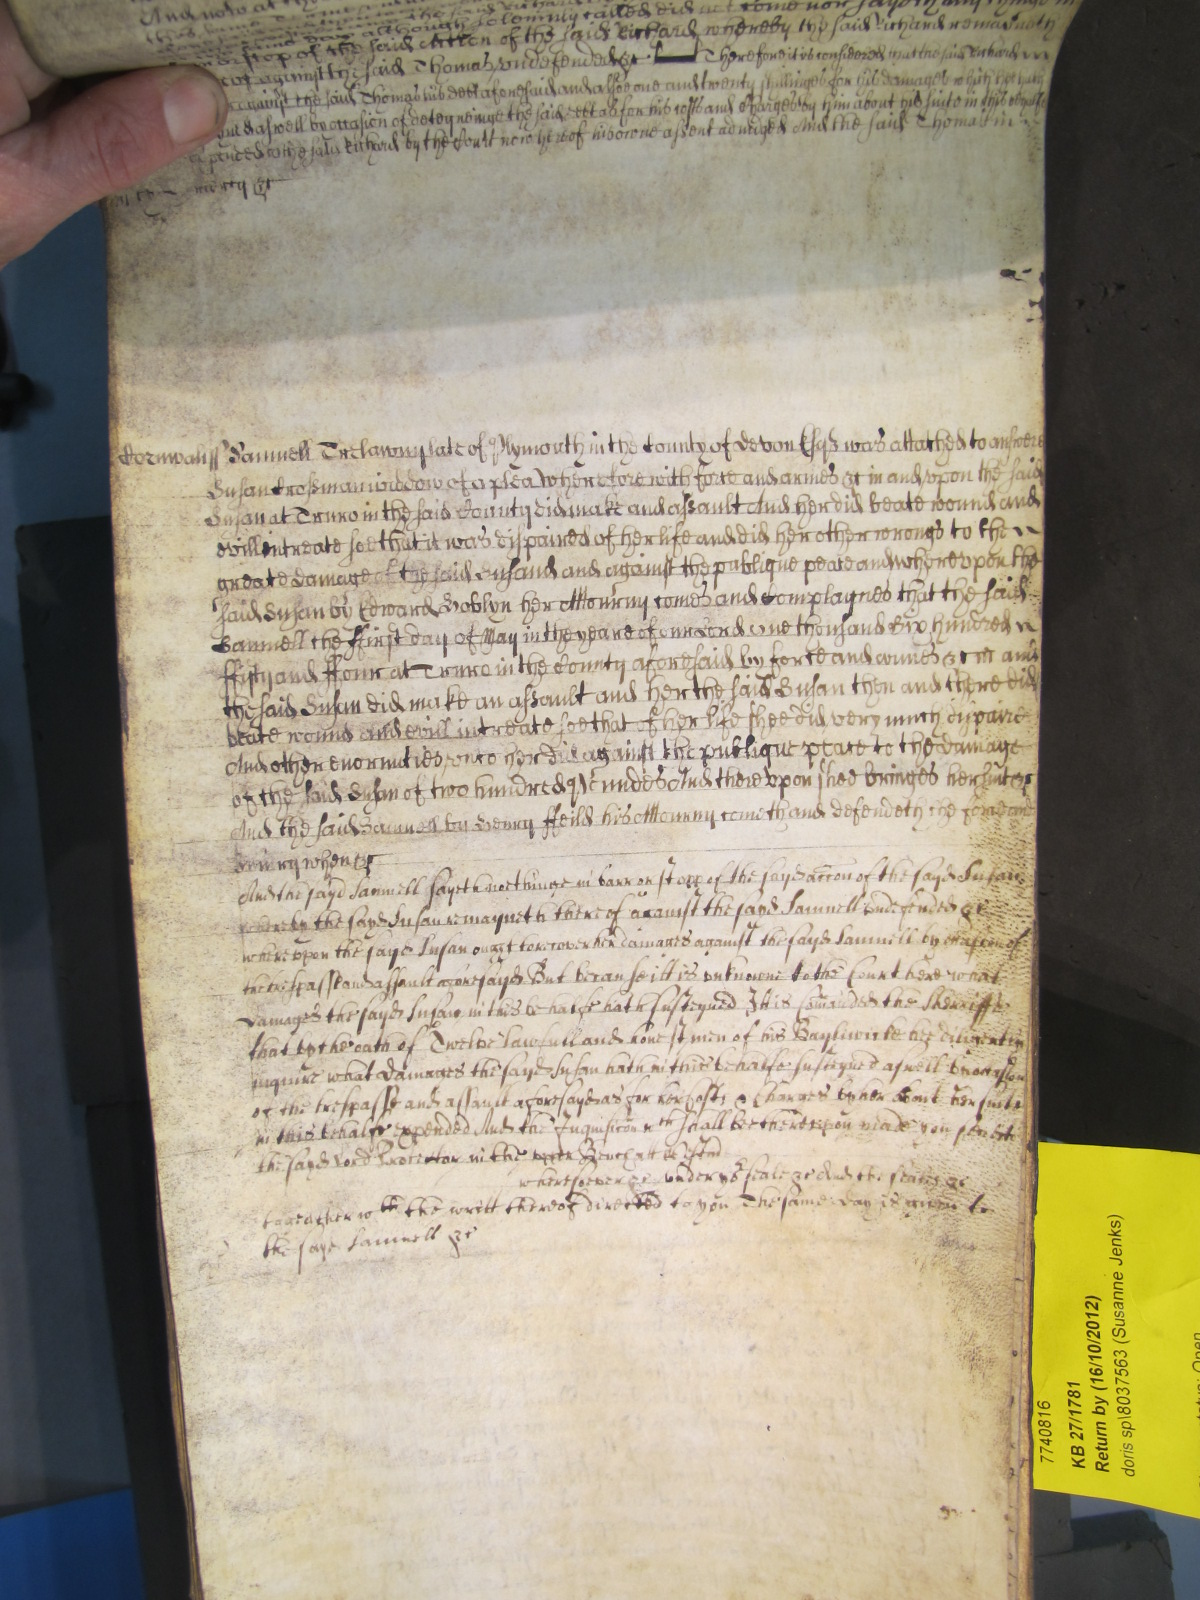 And now at
day although solemnly called did not come nor say any thinge in
stop of the said action of the said Richard whereby the said Richard remayneth
against the said Thomas undefended &c Therefore it is considered that the said Richard
against the said Thomas his debt aforesaid and alsoe one and twenty shillinges for his damages which he hath
aswell by occasion of deteyneinge the said debt as for his costs and charges by him about his suite in this behalfe
expended to the said Richard by the Court now here of his owne assent adiudged And the said Thomas in
mercy &c
Cornwall ss Samuell Trelawny late of Plymouth in the County of Devon Esqr was attached to answere
Susan Crossman widdow of a plea Wherefore with force and armes &c in and upon the said
Susan at Truro in the said County did make and assault And her did beate wound and
evill intreate soe that it was dispaired of her life and did her other wrongs to the
greate damage of the said Susand and against the publique peace and whereupon the
said Susan by Edward Hoblyn her Attourny comes and complaynes that the said
Samuell the ffirst day of May in the yeare of our Lord one thousand six hundred
ffifty and ffour at Truro in the County aforesaid by force and armes &c in and
the said Susan did make an assault and her the said Susan then and there did
beate wound and evill intreate soe that of her life shee did very much dispaire
And other enormities unto her did against the publique peace to the damage
of the said Susan of two hundred Poundes And thereupon shee bringes her suite &c
And the said Samuell by Henry ffeild his Attourny cometh and defendeth the force and
Iniury when &c
And the sayd Samuell sayeth nothinge in barr or stopp of the sayd accon of the sayd Susan
whereby the sayd Susan remayneth thereof against the sayd Samuell undefended &c
whereupon the sayd Susan ought to recover her damages against the sayd Samuell by occasion of
the trespasse and assault aforesayd But because itt is unknowne to the Court here what
damages the sayd Susan in this behalfe hath susteyned It is Comanded the Sherriffe
that by the oath of Twelve lawfull and honest men of his Bayliwicke hee diligently
inquire what damages the sayd Susan hath in this behalfe susteyned aswell by occasion
of the trespasse and assault aforesayd as for her costs & Charges by her about her suite
in this behalfe expended And the Inquisicon wch shall bee thereupon made you send to
the sayd Lord Protector in the upper Bench att Westmr
wheresoever &c under yor seale &c And the seales &c
togeather wth the writt thereof directed to you The same day is given to
the sayd Samuell &c
7740816
KB 27/1781
Return by (16/10/2012)
doris sp\8037563 (Susanne Jenks)
Open